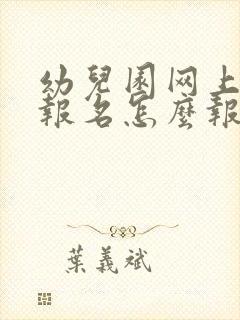 幼兒園网上
報名怎麼報
葉義斌